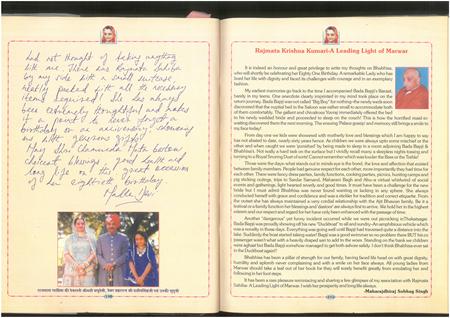 had not thought of taking anything
with me. There was Rajmata Sahiba
by my side with a small suitcase
neatly packed with all the necessary
items required. She has always
been extremely thoughtful and makes
it a point to never forget a
birthday or an anniversary, showering
us with generous gifts!
May Shri Chamunda Mata bestow
choicest blessings, good health and
long life on this great occasion
of her eightieth birthday.
Rajmata Krishna Kumari-A Leading Light of Marwar
It is indeed an honour and great privilege to write my thoughts on Bhabhisa,
who will shortly be celebrating her Eighty One Birthday. A remarkable Lady who has
lived her life with dignity and faced its challenges with courage and in an exemplary
fashion.
My earliest memories go back to the time I accompanied Bada Bapji's Baraat,
barely in my teens. One anecdote clearly imprinted in my mind took place on the
return journey. Bada Bapji was not called 'Big Boy' for nothing - he was ready soon
discovered that the nuptial bed in the Saloon was rather small to accommodate both
of them comfortably. The gallant and chivalrous Bapji immediately offered the bed
to his newly wedded bride and proceeded to sleep on the couch! This is how the horrified maid-in-
waiting discovered them the next morning. The ensuing Palace gossip and memory still brings a smile to
my face today!
From day one we kids were showered with motherly love and blessings which I am happy to say
has not abated to date, nearly sixty years hence. As children we were always upto some mischief or the
other and when caught we were 'punished' by being made to sleep in a room adjoining Bada Bapji &
Bhabhisa's. Not really a hard task on the surface but I vividly recall many a sleepless nights tossing and
turning to a Royal Snoring Duet of sorts! Cannot remember which was louder the Bass or the Tabla!
Those were the days-what stands out in minds eye is the bond, the love and affection that existed
between family members. People had genuine respect for each other, more importantly they had time for
each other. There were fancy dress parties, family functions, cooking parties, picnics, hunting camps and
pig sticking outings, trips to Sardar Samand, Mahamandir, Bagh and Abu-a virtual merry-go-round of social
events and gatherings, light hearted revelry and good times. It must have been a challenge for the new
bride but I must admit Bhabhisa was never found wanting or lacking in any sphere. She always
conducted herself with grace and confidence and was a stickler for tradition and correct etiquette. From
the outset she has always maintained a very cordial relationship with the Ajit Bhawan family. Be it a
festival or a family function her blessings and 'dastoor' are always first to arrive. We hold her in the highest
esteem and our respect and regard for her have only been enhanced with the passage of time.
Another "dangerous" yet funny incident occurred while we were out picnicking at Chokelaoji.
Bada Bapji was proudly showing off his new "Duckboat" to all and sundry-An amphibious vehicle which
was a novelty in those days. Everything was going well until Bapji had traversed quite a distance into the
lake. Suddenly the boat started taking water! Bapji was a good swimmer so no problem there BUT his co
passenger wasn't what with a heavily draped sari to add to the woes. Standing on the bank we children
were aghast but Bada Bapji somehow managed to get both ashore safely. I don't think Bhabhisa ever sat
in the Duckboat again!!
Bhabhisa has been a pillar of strength for our family, having faced life head on with great dignity,
humility and aplomb never complaining and with a smile on her face always. All young ladies from
Marwar should take a leaf out of her book for they will surely benefit greatly from emulating her and
following in her foot steps.
It has been a rare pleasure reminiscing and sharing a few glimpses of my association with Rajmata
Sahiba- A Leading Light of Marwar. I wish her prosperity and long life always.
-Maharajdhiraj Sobhag Singh